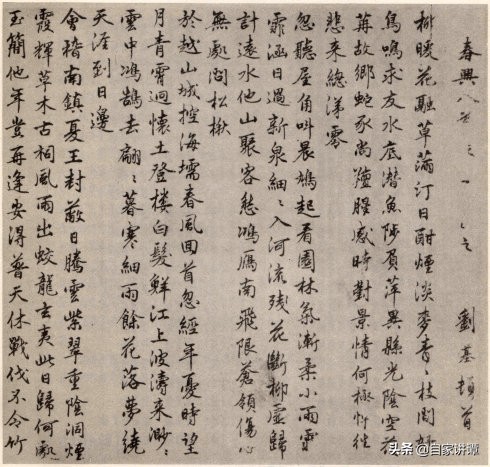 春興八首之一 劉基頓首
柳暖花融草滿汀日酣煙淡麥青〻枝間好
鳥鳴求友水底潛魚陟負萍異縣光陰空荏
苒故鄉蛇豕尚羶腥感時對景情何極忖往
悲来總涕零
忽聽屋角叫晨鳩起看園林氣漸柔小雨雲
霏涵日過新泉細〻入河流殘花斷柳虛歸
計遠水他山聚客愁鳴雁南飛限蒼嶺傷心
無處問松楸
於越山城控海壖春風回首忽經年憂時望
月青霄迥懷土登樓白髮鮮江上波濤来渺〻
雲中鴻鵠去翩〻暮寒細雨餘花落夢繞
天涯到日邊
會稽南鎮夏王封蔽日騰雲紫翠重陰洞煙
霞輝草木古祠風雨出蛟龍玄夷此日歸何處
玉簡他年豈再逢安得普天休戰伐不令竹
头条 @自家讲谭